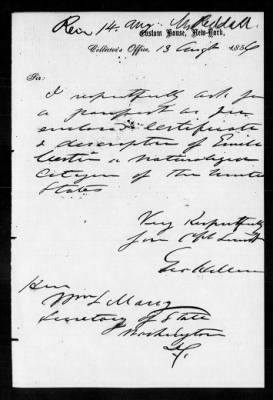 Rec 14. Aug.
Custom House, New-York,
Collector's Office, 13 Augt 1856
Sir:
I respectfully ask for
a passport as per
enclosed Certificate
& description of Emile
a naturalized
Citizen of the United
States
Very Respectfully
Your Obt Servt
Hon
Wm L Marcy
Secretary of State
Washington